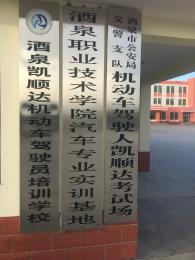 酒泉凯顺达机动车驾驶员培训学校
酒泉职业技术学院汽车专业实训基地
酒泉市公安局
交警支队
机动车驾驶人凯顺达考试场